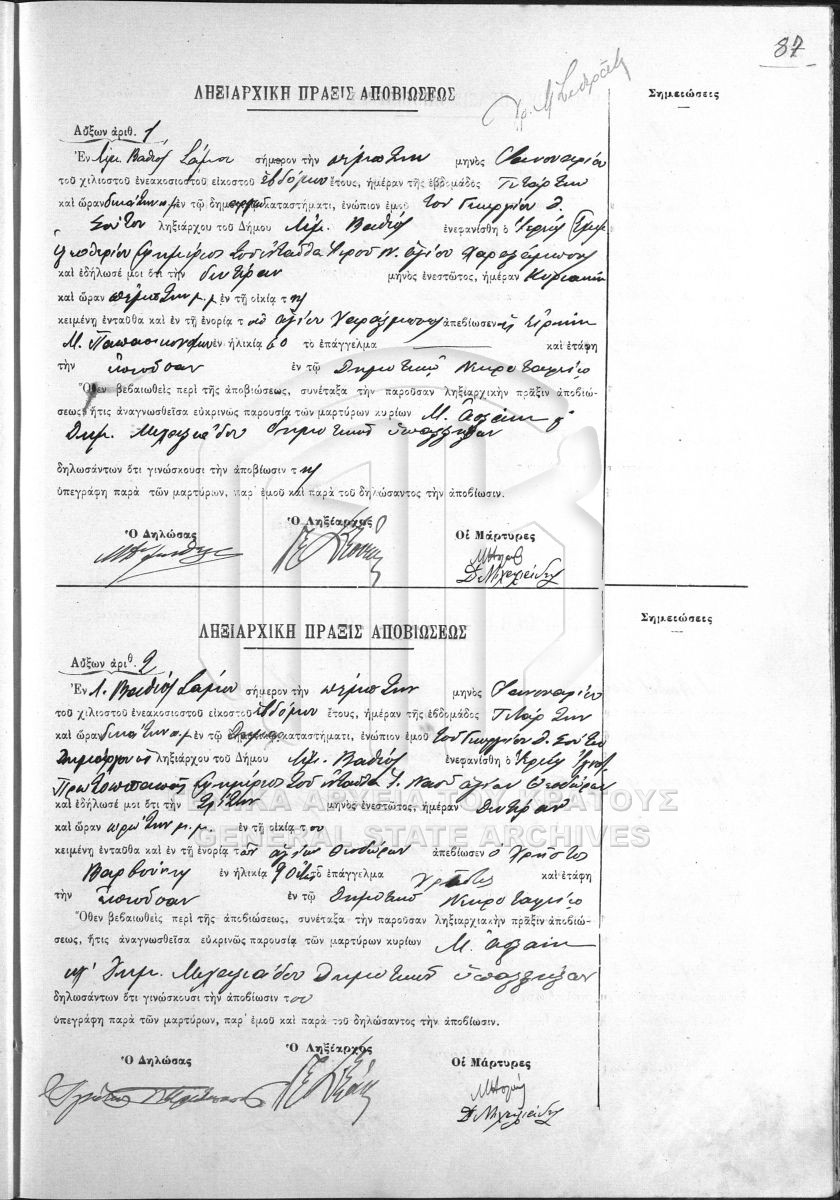 87
ΛΗΞΙΑΡΧΙΚΗ ΠΡΑΞΙΣ ΑΠΟΒΙΩΣΕΩΣ
Σημειώσεις
Αὔξων ἀριθ. 1
Ἐν Λιμ. Βαθέος Σάμου σήμερον τὴν πέμπτην μηνὸς Ἰανουαρίου
τοῦ χιλιοστοῦ ἐνεακοσιοστοῦ εἰκοστοῦ ἑβδόμου ἔτους, ἡμέραν τῆς ἑβδομάδος Τετάρτην
καὶ ὥραν δεκάτην π.μ ἐν τῷ καταστήματι, ἐνώπιον ἐμοῦ τοῦ Γεωργίου Δ.
Σούτου ληξιάρχου τοῦ Δήμου Λιμ. Βαθέος ἐνεφανίσθη ὁ Ἱερεὺς
Ἐλευθερίου Ἐφημέριος τοῦ ἐνταῦθα Ἱεροῦ Ν. Ἁγίου Χαραλάμπους
καὶ ἐδήλωσέ μοι ὅτι τὴν δευτέραν μηνὸς ἐνεστῶτος, ἡμέραν Κυριακὴν
καὶ ὥραν πέμπτην μ.μ ἐν τῇ οἰκίᾳ της
κειμένῃ ἐνταῦθα καὶ ἐν τῇ ἐνορίᾳ τοῦ ἁγίου Χαραλάμπους ἀπεβίωσεν ἡ Εἰρήνη
Μ. ἐν ἡλικίᾳ 60 τὸ ἐπάγγελμα καὶ ἐτάφη
τὴν ἐπιοῦσαν ἐν τῷ Δημοτικῷ Νεκροταφείῳ
Ὅθεν βεβαιωθεὶς περὶ τῆς ἀποβιώσεως, συνέταξα τὴν παροῦσαν ληξιαρχικὴν πρᾶξιν ἀποβιώ-
σεως, ἥτις ἀναγνωσθεῖσα εὐκρινῶς παρουσίᾳ τῶν μαρτύρων κυρίων Μ.
Δημ. Μιχαλιάδου Δημοτικῶν ὑπαλλήλων
δηλωσάντων ὅτι γινώσκουσι τὴν ἀποβίωσιν της
ὑπεγράφη παρὰ τῶν μαρτύρων, παρ' ἐμοῦ καὶ παρὰ τοῦ δηλώσαντος τὴν ἀποβίωσιν.
Ὁ Δηλώσας
Ὁ Ληξίαρχος
Οἱ Μάρτυρες
Δ. Μιχαλιάδης
ΛΗΞΙΑΡΧΙΚΗ ΠΡΑΞΙΣ ΑΠΟΒΙΩΣΕΩΣ
Σημειώσεις
Αὔξων ἀριθ. 2
Ἐν Λ. Βαθέος Σάμου σήμερον τὴν πέμπτην μηνὸς Ἰανουαρίου
τοῦ χιλιοστοῦ ἐνεακοσιοστοῦ εἰκοστοῦ ἑβδόμου ἔτους, ἡμέραν τῆς ἑβδομάδος Τετάρτην
καὶ ὥραν δεκάτην π.μ ἐν τῷ καταστήματι, ἐνώπιον ἐμοῦ τοῦ Γεωργίου Δ. Σούτου
Δημάρχου ληξιάρχου τοῦ Δήμου Λιμ. Βαθέος ἐνεφανίσθη ὁ Ἱερεὺς
Πρωτοπαπᾶς Ἐφημέριος τοῦ ἐνταῦθα Ἱ. Ναοῦ ἁγίων Θεοδώρων
καὶ ἐδήλωσέ μοι ὅτι τὴν τρίτην μηνὸς ἐνεστῶτος, ἡμέραν Δευτέραν
καὶ ὥραν πρώτην μ.μ. ἐν τῇ οἰκίᾳ του
κειμένῃ ἐνταῦθα καὶ ἐν τῇ ἐνορίᾳ τῶν ἁγίων Θεοδώρων ἀπεβίωσεν ὁ Χρῆστος
Βαρβούνης ἐν ἡλικίᾳ 90 ἐτῶν τὸ ἐπάγγελμα καὶ ἐτάφη
τὴν ἐπιοῦσαν ἐν τῷ Δημοτικῷ Νεκροταφείῳ
Ὅθεν βεβαιωθεὶς περὶ τῆς ἀποβιώσεως, συνέταξα τὴν παροῦσαν ληξιαρχιακὴν πρᾶξιν ἀποβιώ-
σεως, ἥτις ἀναγνωσθεῖσα εὐκρινῶς παρουσίᾳ τῶν μαρτύρων κυρίων Μ.
κ' Δημ. Μιχαλιάδου Δημοτικῶν ὑπαλλήλων
δηλωσάντων ὅτι γινώσκουσι τὴν ἀποβίωσιν του
ὑπεγράφη παρὰ τῶν μαρτύρων, παρ' ἐμοῦ καὶ παρὰ τοῦ δηλώσαντος τὴν ἀποβίωσιν.
Ὁ Δηλώσας
Ὁ Ληξίαρχος
Οἱ Μάρτυρες
Δ. Μιχαλιάδης
ΓΕΝΙΚΑ ΑΡΧΕΙΑ ΤΟΥ ΚΡΑΤΟΥΣ
GENERAL STATE ARCHIVES